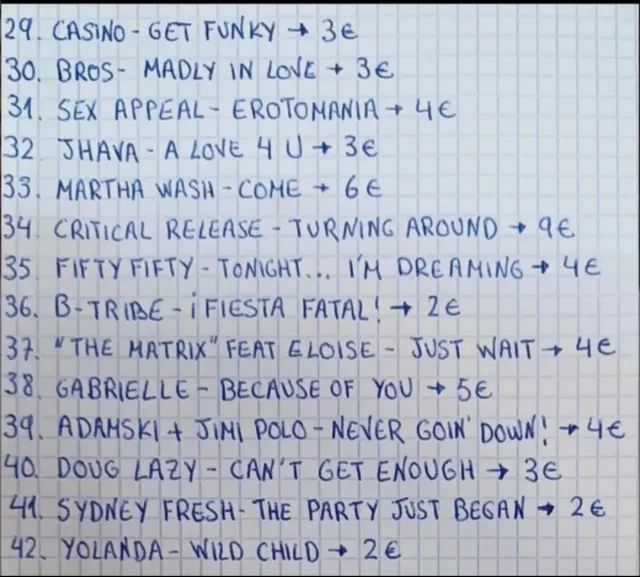 29. CASINO - GET FUNKY → 3€
30. BROS - MADLY IN LOVE → 3€
31. SEX APPEAL - EROTOMANIA → 4€
32. JHAVA - A LOVE 4 U → 3€
33. MARTHA WASH - COME → 6€
34. CRITICAL RELEASE - TURNING AROUND → 9€
35. FIFTY FIFTY - TONIGHT... I'M DREAMING → 4€
36. B-TRIBE - ¡FIESTA FATAL! → 2€
37. "THE MATRIX" FEAT ELOISE - JUST WAIT → 4€
38. GABRIELLE - BECAUSE OF YOU → 5€
39. ADAMSKI + JIMI POLO - NEVER GOIN' DOWN! → 4€
40. DOUG LAZY - CAN'T GET ENOUGH → 3€
41. SYDNEY FRESH - THE PARTY JUST BEGAN → 2€
42. YOLANDA - WILD CHILD → 2€